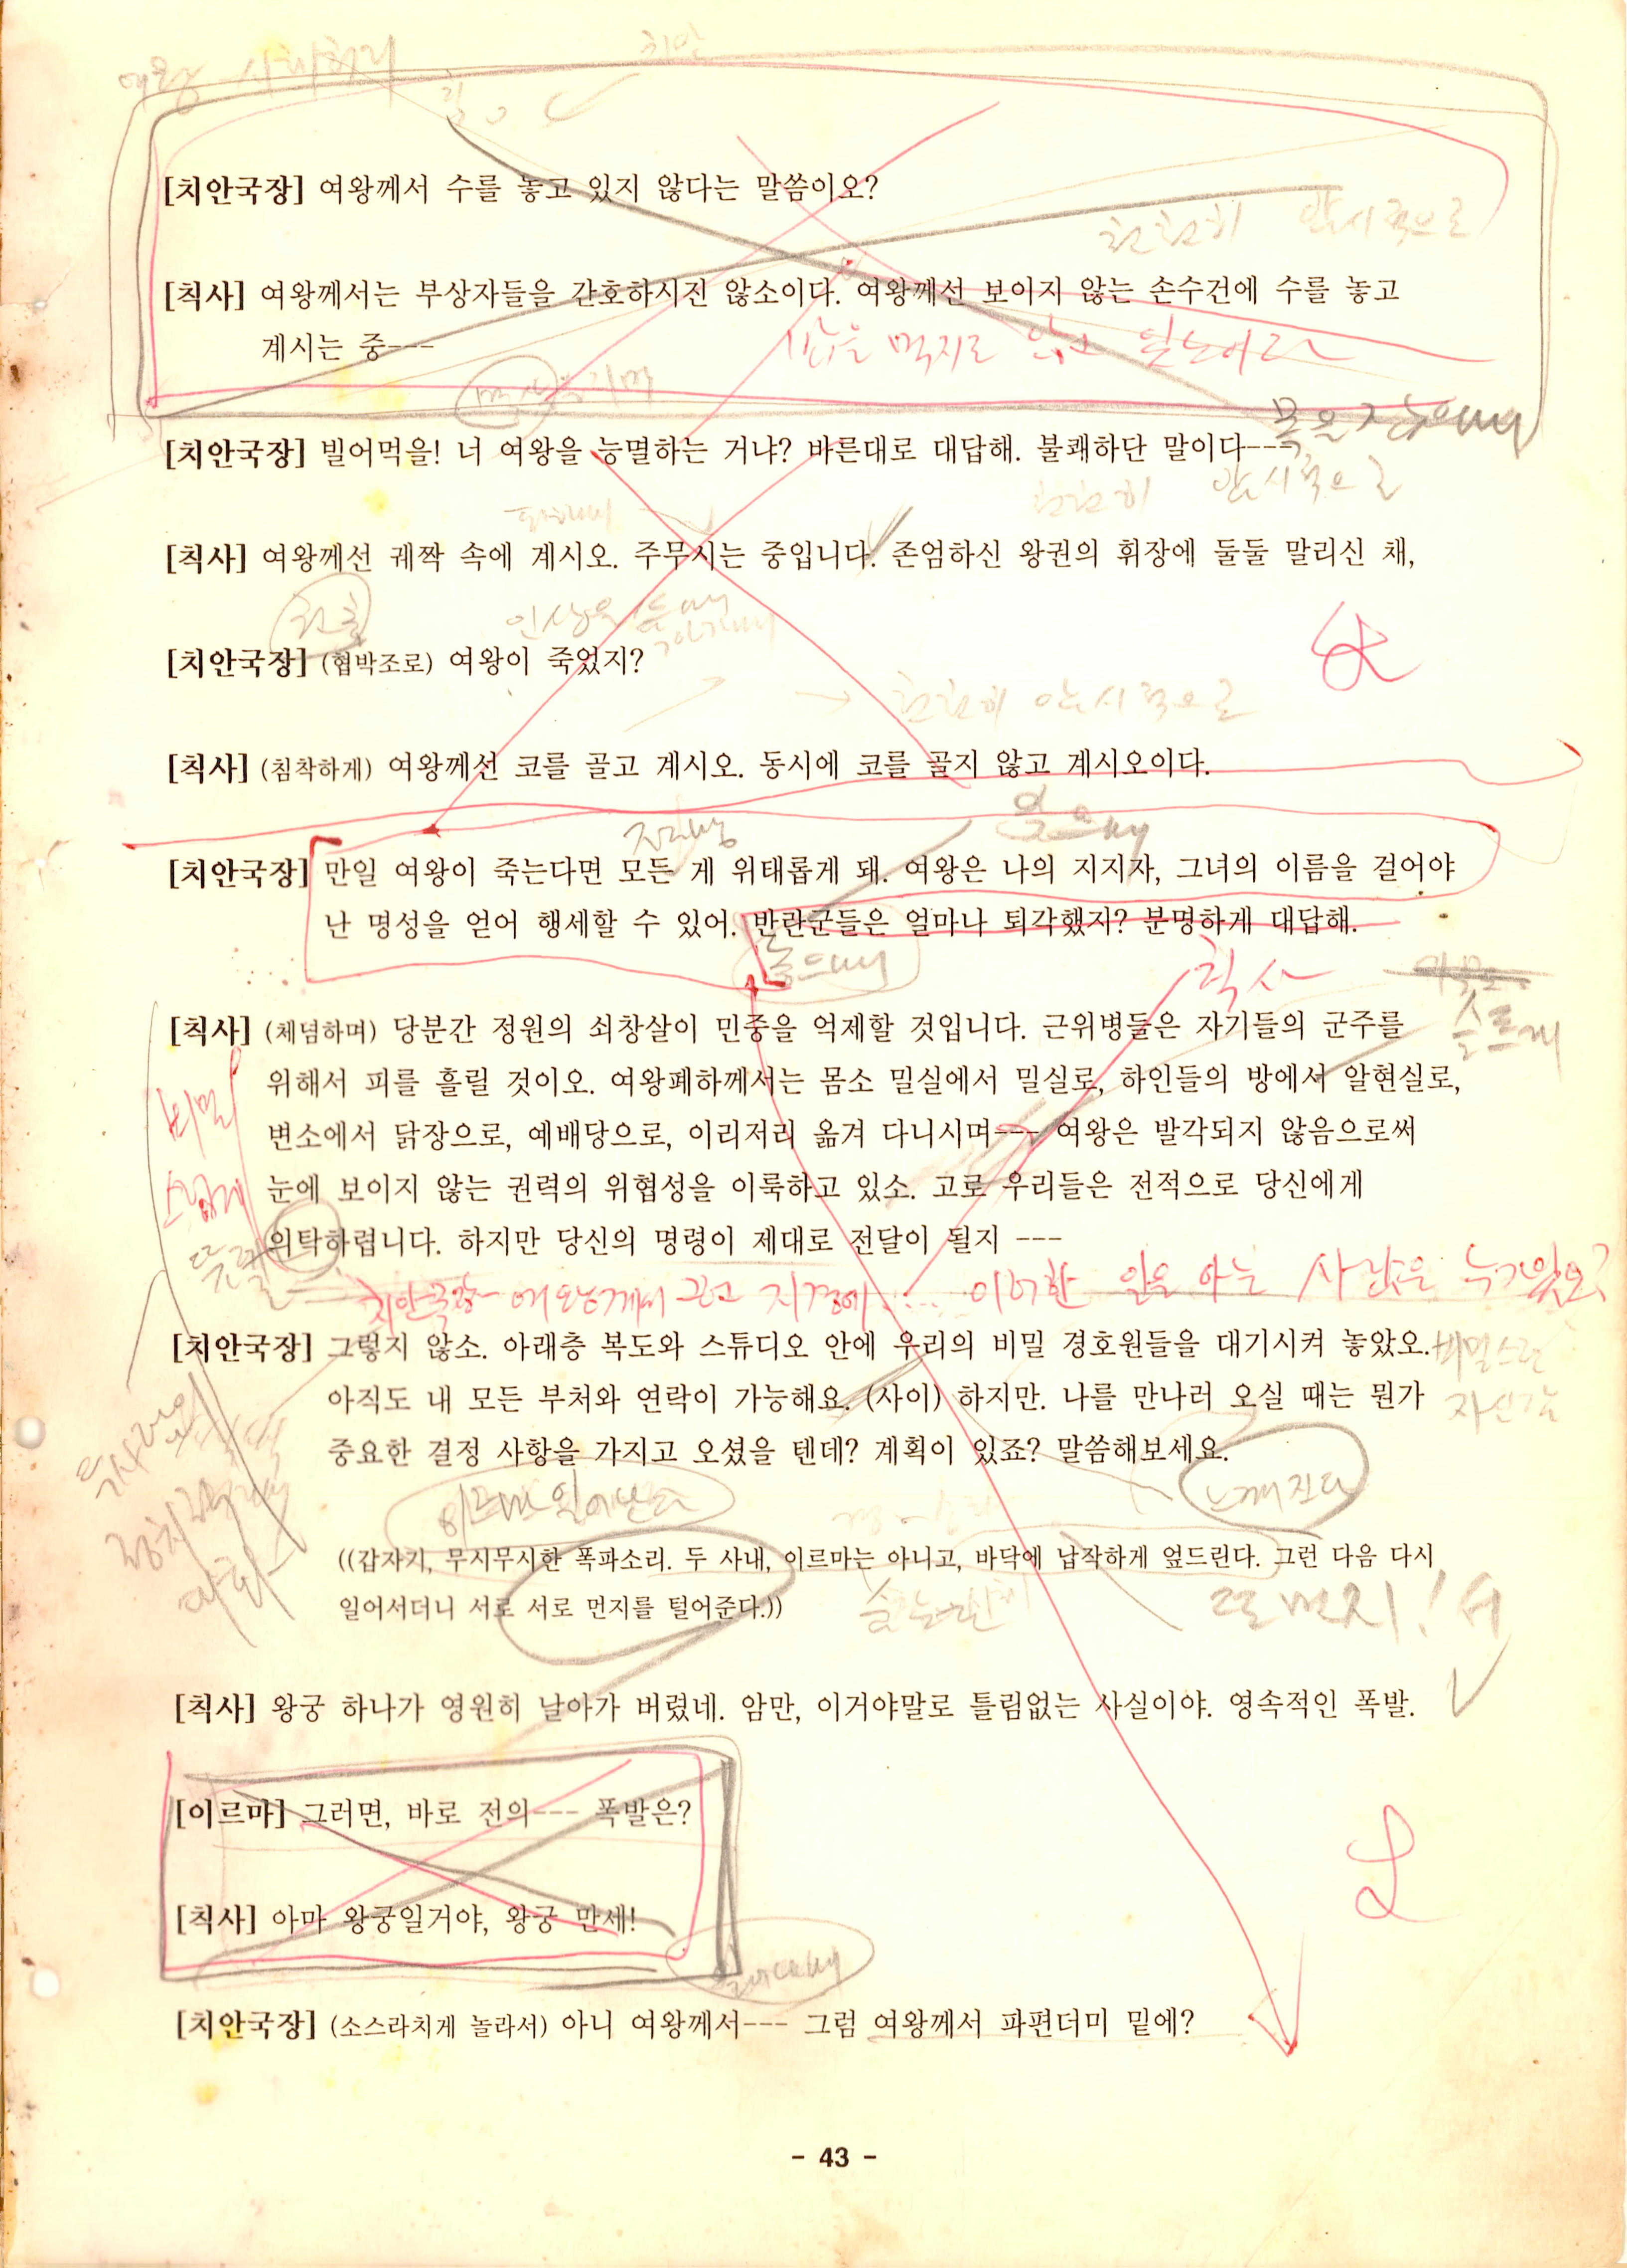 여왕 시체처리
치안
[치안국장] 여왕께서 수를 놓고 있지 않다는 말씀이오?
천천히 암시적으로
[칙사] 여왕께서는 부상자들을 간호하시진 않소이다. 여왕께선 보이지 않는 손수건에 수를 놓고
계시는 중---
[치안국장] 빌어먹을! 너 여왕을 능멸하는 거냐? 바른대로 대답해. 불쾌하단 말이다---
천천히 암시적으로
[칙사] 여왕께선 궤짝 속에 계시오. 주무시는 중입니다. 존엄하신 왕권의 휘장에 둘둘 말리신 채,
[치안국장] (협박조로) 여왕이 죽었지?
→ 천천히 암시적으로
[칙사] (침착하게) 여왕께선 코를 골고 계시오. 동시에 코를 골지 않고 계시오이다.
[치안국장] 만일 여왕이 죽는다면 모든 게 위태롭게 돼. 여왕은 나의 지지자, 그녀의 이름을 걸어야
난 명성을 얻어 행세할 수 있어. 반란군들은 얼마나 퇴각했지? 분명하게 대답해.
칙사
[칙사] (체념하며) 당분간 정원의 쇠창살이 민중을 억제할 것입니다. 근위병들은 자기들의 군주를
위해서 피를 흘릴 것이오. 여왕폐하께서는 몸소 밀실에서 밀실로, 하인들의 방에서 알현실로,
변소에서 닭장으로, 예배당으로, 이리저리 옮겨 다니시며--- 여왕은 발각되지 않음으로써
눈에 보이지 않는 권력의 위협성을 이룩하고 있소. 고로 우리들은 전적으로 당신에게
위탁하렵니다. 하지만 당신의 명령이 제대로 전달이 될지 ---
비밀
스럽게
치안국장 여왕께서 지경에..... 이러한 일을 아는 사람은 누가있오?
[치안국장] 그렇지 않소. 아래층 복도와 스튜디오 안에 우리의 비밀 경호원들을 대기시켜 놓았오.
비밀스런
자신감
아직도 내 모든 부처와 연락이 가능해요. (사이) 하지만. 나를 만나러 오실 때는 뭔가
중요한 결정 사항을 가지고 오셨을 텐데? 계획이 있죠? 말씀해보세요.
이르마 일어난다
((갑자기, 무시무시한 폭파소리. 두 사내, 이르마는 아니고, 바닥에 납작하게 엎드린다. 그런 다음 다시
일어서더니 서로 서로 먼지를 털어준다.))
[칙사] 왕궁 하나가 영원히 날아가 버렸네. 암만, 이거야말로 틀림없는 사실이야. 영속적인 폭발.
[이르마] 그러면, 바로 전의--- 폭발은?
[칙사] 아마 왕궁일거야, 왕궁 만세!
[치안국장] (소스라치게 놀라서) 아니 여왕께서--- 그럼 여왕께서 파편더미 밑에?
- 43 -